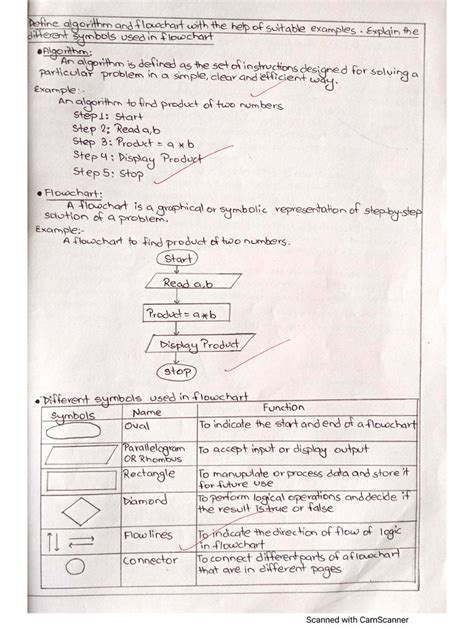 Define algorithm and flowchart with the help of suitable examples. Explain the
different symbols used in flowchart
• Algorithm:
An algorithm is defined as the set of instructions designed for solving a
particular problem in a simple, clear and efficient way.
Example:-
An algorithm to find product of two numbers
Step 1: Start
Step 2: Read a,b
Step 3: Product = a * b
Step 4: Display Product
Step 5: Stop
• Flowchart:
A flowchart is a graphical or symbolic representation of step-by-step
solution of a problem.
Example:-
A flowchart to find product of two numbers.
Start
Read a,b
Product = a*b
Display Product
Stop
• Different symbols used in flowchart
Symbols Name Function
Oval To indicate the start and end of a flowchart
Parallelogram To accept input or display output
OR Rhombus
Rectangle To manupulate or process data and store it
for future use
Diamond To perform logical operations and decide if
the result is true or false
Flowlines To indicate the direction of flow of logic
in flowchart
Connector To connect different parts of a flowchart
that are in different pages
Scanned with CamScanner